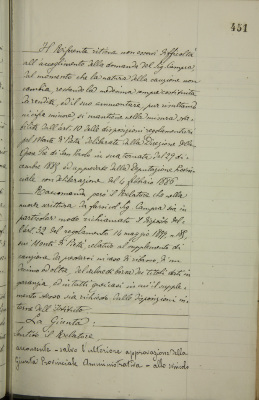 451
Il Riferente ritiene non esservi difficoltà
all'accoglimento della domanda del Sig. Campra,
dal momento che la natura della cauzione non
cambia, restando la medesima sempre costituita
da rendita, ed il suo ammontare, pur risultando
della misura sta-
bilita dall'art. 10 delle disposizioni regolamentari
pel Monte di Pietà deliberate dalla Direzione delle
Opere Pie di San Paolo in sua tornata del 29 di-
cembre ed approvate dalla Deputazione Provin-
ciale con deliberazione del 4 febbraio 1886.
Raccomanda però il Relatore che nella
nuova scrittura da farsi col Sig. Campra sia in
particolar modo richiamato il disposto del-
l'art. 32 del regolamento 14 maggio
sui Monti di Pietà, relativo al supplemento di
cauzione da prestarsi in caso di ribasso, di un
decimo od oltre, del valore di borsa dei titoli dati in
garanzia, ed in tutti quei casi in cui il supple-
mento stesso sia richiesto dalle disposizioni in-
terne dell'Istituto.
La Giunta:
Sentito il Relatore
acconsente - salvo l'ulteriore approvazione della
Giunta Provinciale Amministrativa - allo svincolo